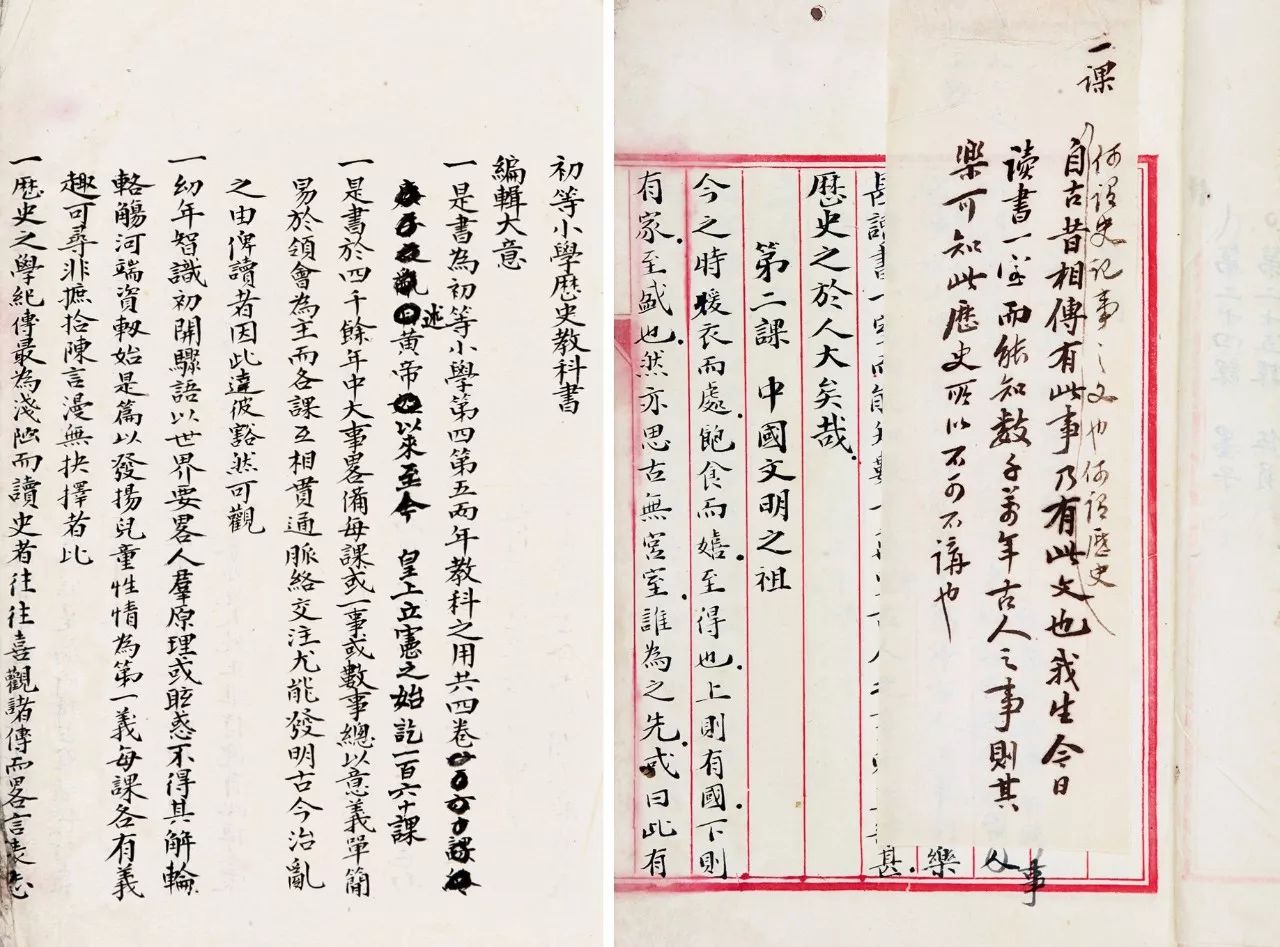 初等小學歷史教科書
編輯大意
一是書為初等小學第四第五兩年教科之用共四卷
述黃帝以來至今　皇上立憲之始訖一百六十課
一是書於四千餘年中大事畧備每課或一事或數事總以意義單簡
易於領會為主而各課互相貫通脈絡交注尤能發明古今治亂
之由俾讀者因此達彼豁然可觀
一幼年智識初開驟語以世界要畧人羣原理或眩惑不得其解輪
輅觴河端資軔始是篇以發揚兒童性情為第一義每課各有義
趣可尋非摭拾陳言漫無抉擇者比
一歷史之學紀傳最為淺陋而讀史者往往喜觀諸傳而畧言表志
一课
何谓史记事之文也何谓歷史
自古昔相傳有此事乃有此文也我生今日
读書一室而能知数千萬年古人之事則其
樂可知此歷史所以不可不講也
事
人
樂
甚
歷史之於人大矣哉
第二課　中國文明之祖
今之時煖衣而處飽食而嬉至得也上則有國下則
有家至盛也然亦思古無宮室誰為之先或曰此有